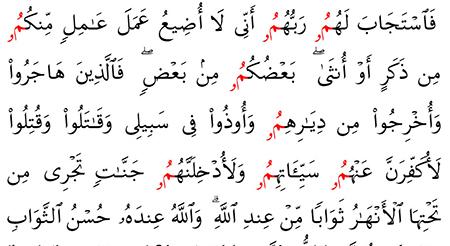 فَٱسْتَجَابَ لَهُمُۥ رَبُّهُمُۥ أَنِّى لَا أُضِيعُ عَمَلَ عَـٰمِلٖ مِّنكُمُۥ
مِن ذَكَرٍ أَوْ أُنثَىٰۖ بَعْضُكُمُۥ مِنۢ بَعْضٖۖ فَٱلَّذِينَ هَاجَرُواْ
وَأُخْرِجُواْ مِن دِيَـٰرِهِمُۥ وَأُوذُواْ فِى سَبِيلِى وَقَـٰتَلُواْ وَقُتِلُواْ
لَأُكَفِّرَنَّ عَنْهُمُۥ سَيِّـَٔاتِهِمُۥ وَلَأُدْخِلَنَّهُمُۥ جَنَّـٰتٖ تَجْرِى مِن
تَحْتِهَا ٱلْأَنْهَـٰرُ ثَوَابٗا مِّنْ عِندِ ٱللَّهِۗ وَٱللَّهُ عِندَهُۥ حُسْنُ ٱلثَّوَابِ